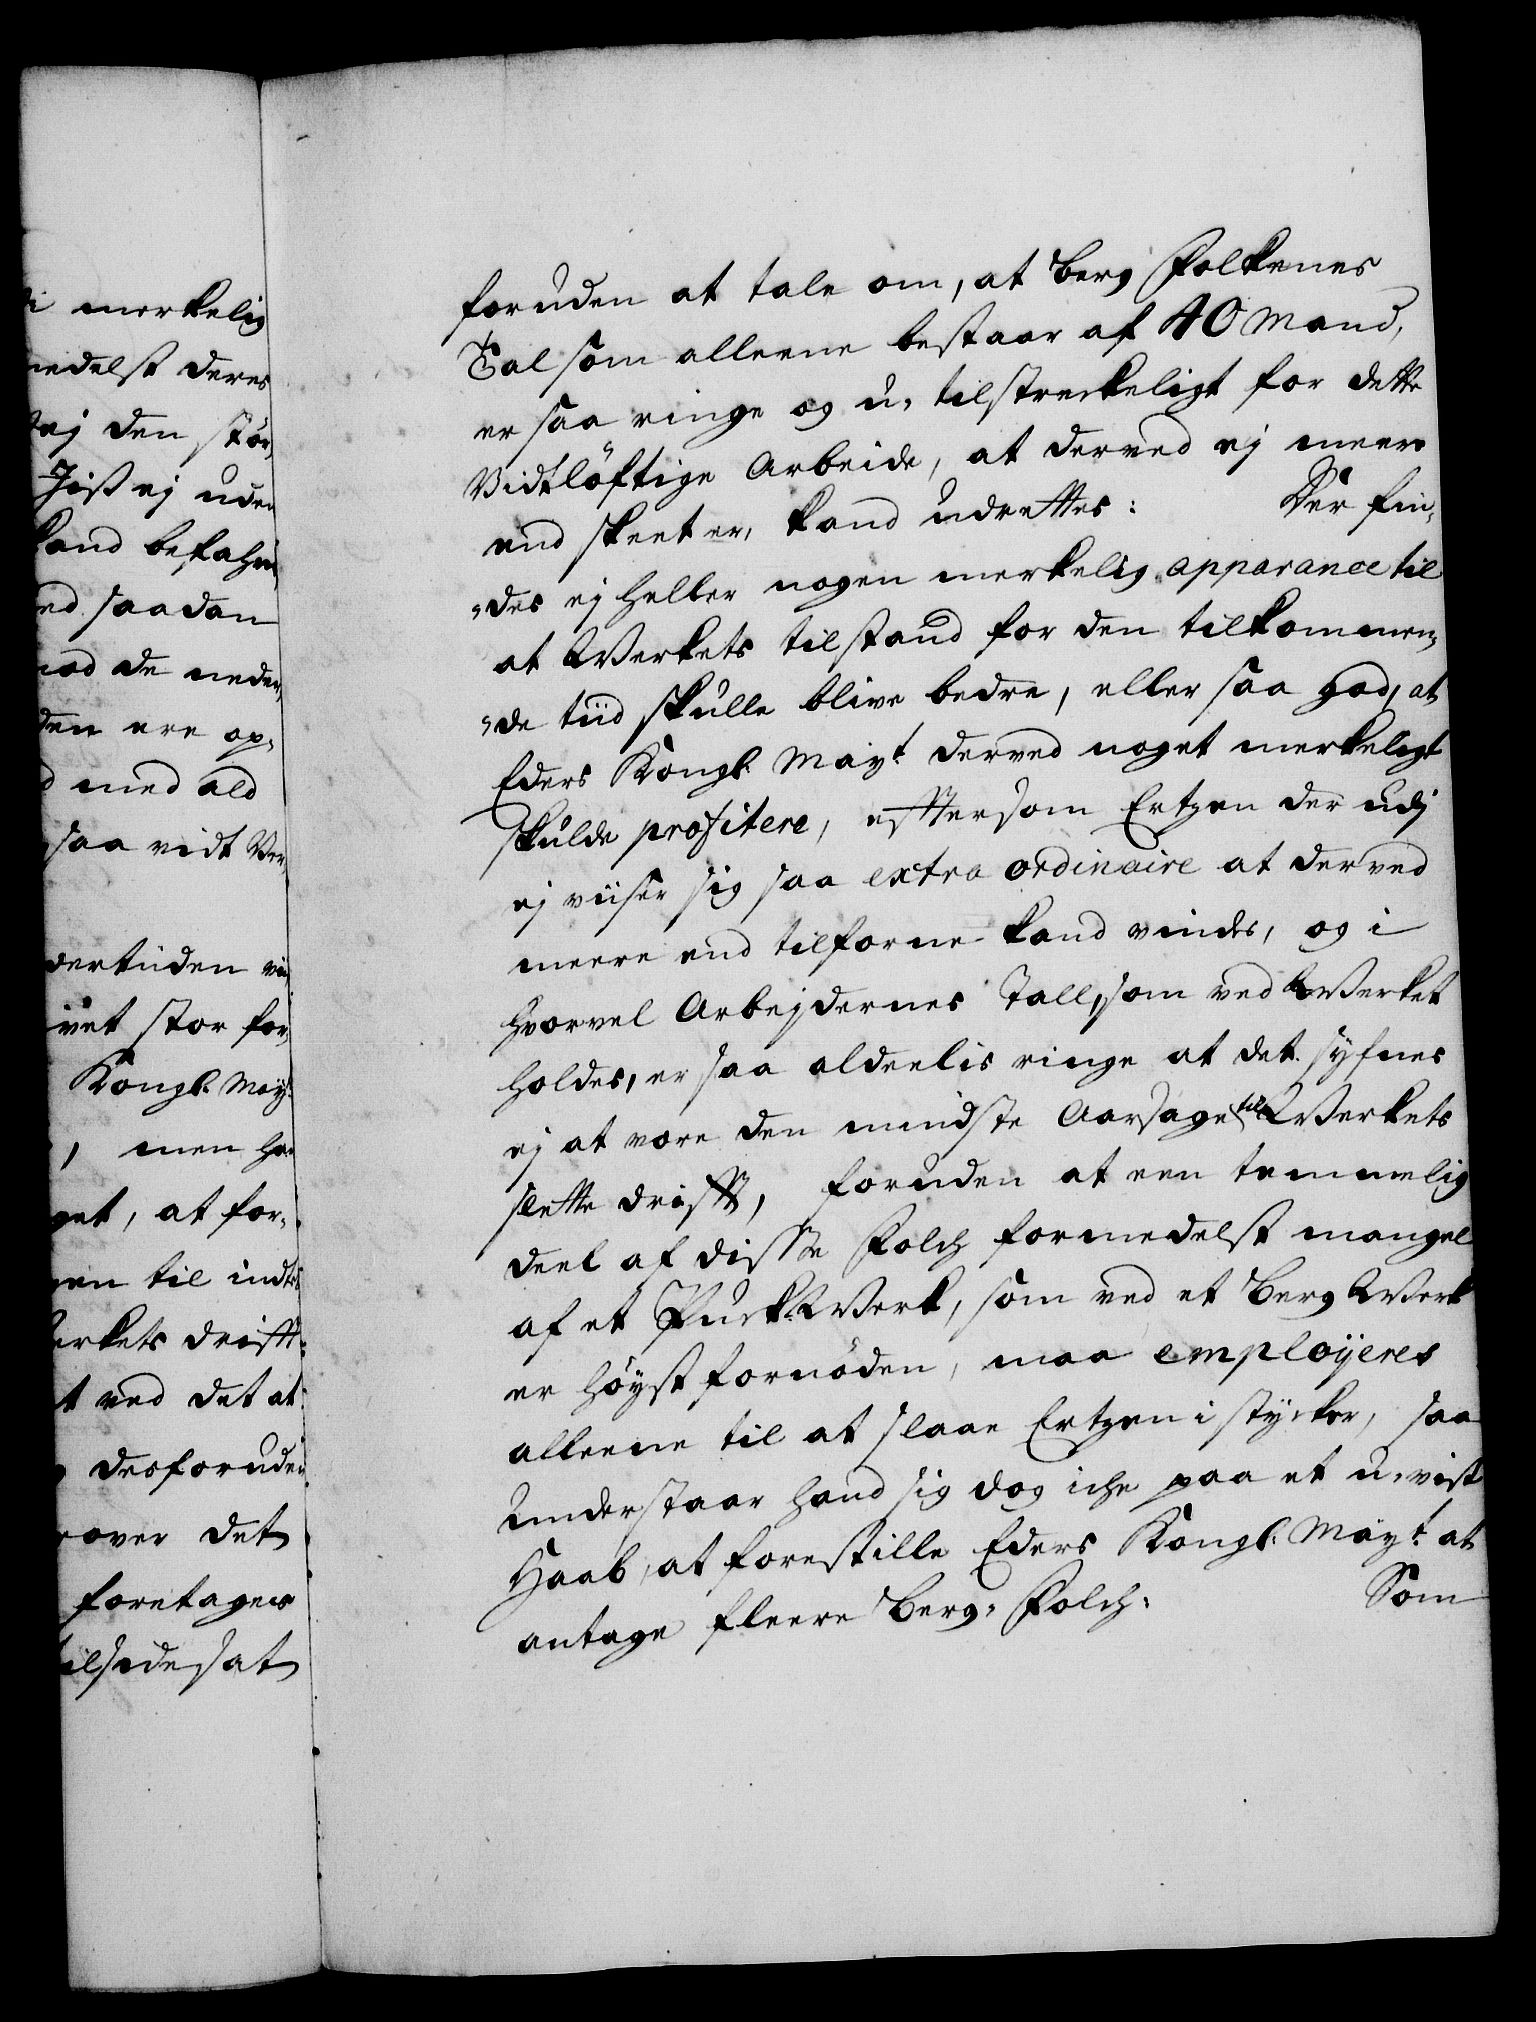 i merkelig
medelst deres
ej den stör,
Jist ej uden
kand befahres
ed saadan
mod de neder,
den ere op,
d med ald
saa vidt Ver,
dertiden
ivet stor for,
Kongl. May.
, men har
get, at for,
gen til indtil
erkets drifft:
t ved det at
desforuden
over det
foretages
tilsidesat
foruden at tale om, at Berg Folkenes
Tal som alleene bestaar af 40 Mand,
er saa ringe og u, tilstreckeligt for dette
Vidtløftige Arbeide, at derved ej meere
end skeet er, kand udrettes: Der fin,
,des ej heller nogen merkelig apparance til
at Werkets tilstand for den tilkommen,
,de tiid skulle blive bedre, eller saa god, at
Eders Kongl. Mayt. derved noget merkeligt
skulde profitere, effttersom Ertzen der udj
ej viiser sig saa extra ordinaire at derved
meere end tilforne kand vindes, og i
hvorvel Arbejdernes Tall, som ved Werket
holdes, er saa aldeelis ringe at det syfnes
ej at være den mindste Aarsage til Werkets
slette drifft, foruden at een temmelig
deel af disse Folch formedelst mangel
af et PuckWerk, som ved et Berg Werk
er høyst fornöden, maa employeres
alleene til at slaae Ertzen i stycker, saa
Understaar hand sig dog iche paa et u, vist
Haab, at forestille Eders Kongl. Mayt. at
antage fleere Berg, Folch. Som